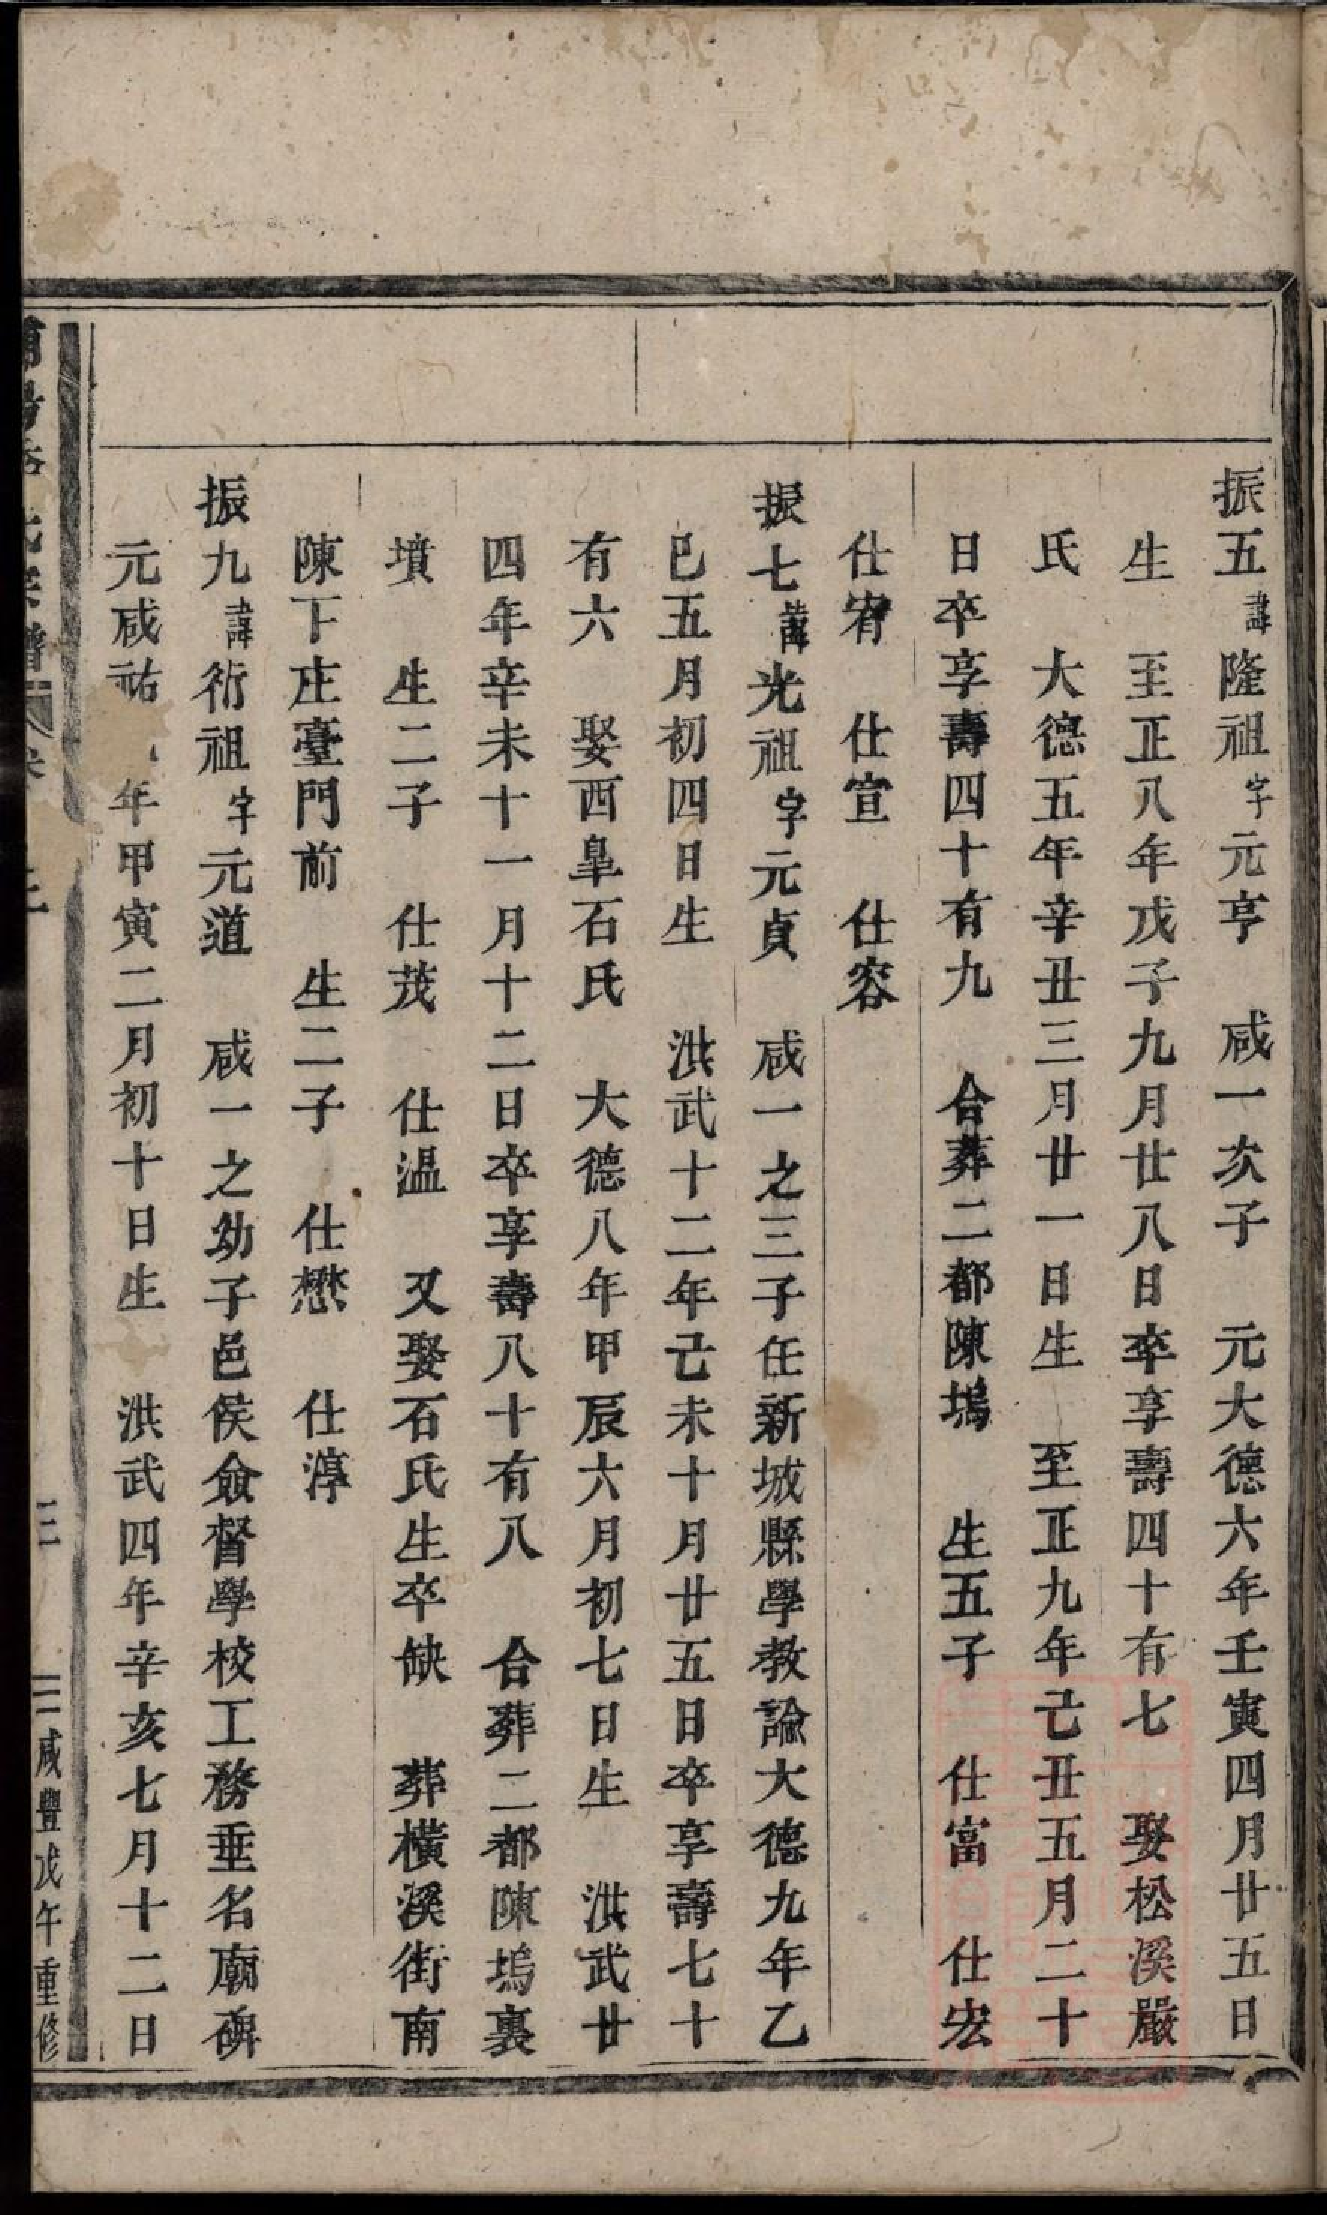 振五諱隆祖字元亨 咸一次子 元大德六年壬寅四月廿五日
生 至正八年戊子九月廿八日卒享壽四十有七 娶松溪嚴
氏 大德五年辛丑三月廿一日生 至正九年己丑五月二十
日卒享壽四十有九 合葬二都陳塢 生五子 仕富 仕宏
仕宥 仕宣 仕容
振七諱光祖字元貞 咸一之三子任新城縣學教諭大德九年乙
巳五月初四日生 洪武十二年己未十月廿五日卒享壽七十
有六 娶西皐石氏 大德八年甲辰六月初七日生 洪武廿
四年辛未十一月十二日卒享壽八十有八 合葬二都陳塢裏
墳 生二子 仕茂 仕溫 又娶石氏生卒缺 葬橫溪街南
陳下庄臺門前 生二子 仕懋 仕淳
振九諱衍祖字元道 咸一之幼子邑侯僉督學校工務垂名廟碑
元咸祐 年甲寅二月初十日生 洪武四年辛亥七月十二日
氏宗譜 三 咸豐戊午重修